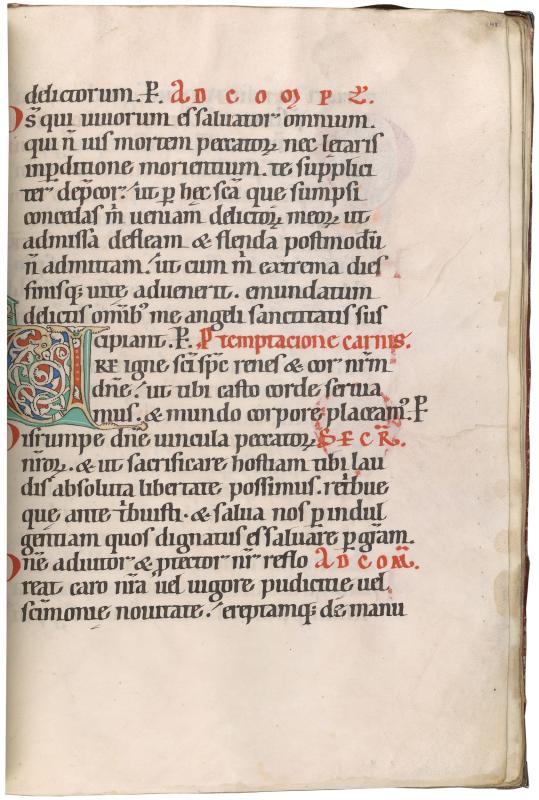 delictorum. P. AD COMPL̄.
Ds̄ qui uiuorum es saluator omnium.
qui n̄ uis mortem peccatoꝝ nec letaris
inp̱ditione morientium. te supplici
ter dep̄cor. ut ꝑ hec sc̄a que sumpsi
concedas m̄ ueniam delictoꝝ meoꝝ ut
admissa defleam & flenda postmodū
n̄ admittam. ut cum m̄ extrema dies
finisqꝫ uite aduenerit. emundatum
delictis omībꝰ me angeli sanctitatis sus
cipiant. P. P temptacione carnis.
URE igne sc̄i sp̄c renes & cor nr̄m
dn̄e. ut tibi casto corde serua
mus. & mundo corpore placeamꝰ. P
Disrumpe dn̄e uincula peccatoꝝ SECR̄.
nr̄oꝝ. & ut sacrificare hostiam tibi lau
dis absoluta libertate possimus. retibue
que ante tibuisti. & salua nos ꝑ indul
gentiam quos dignatus es saluare ꝑ gr̄am.
Dn̄e adiutor & ꝓtector nr̄ reflo AD COM̄.
reat caro nr̄a uel uigore pudicitie uel
sc̄imonie nouitate. ereptamqꝫ de manu